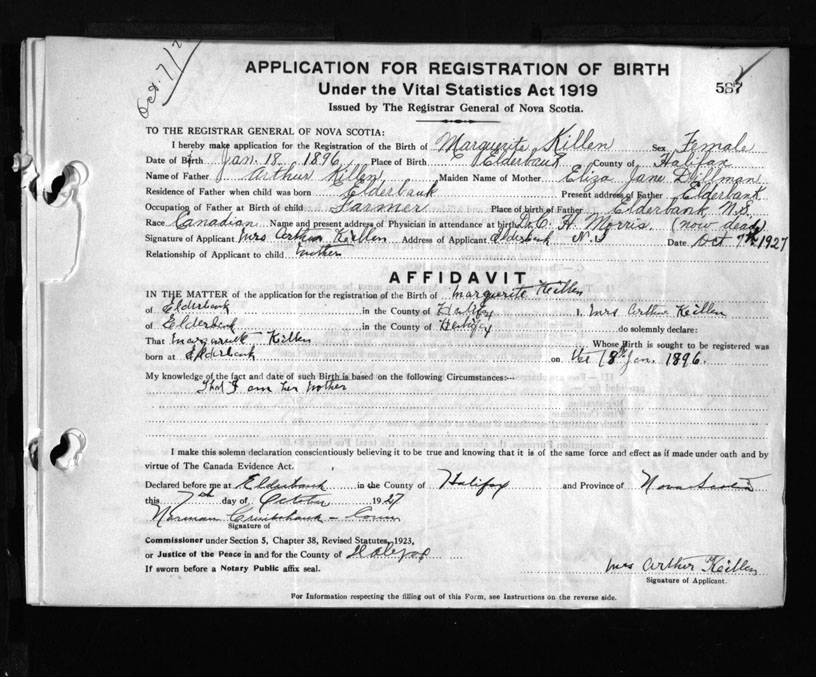 Oct. 7/2
APPLICATION FOR REGISTRATION OF BIRTH
587
Under the Vital Statistics Act 1919
Issued by The Registrar General of Nova Scotia.
TO THE REGISTRAR GENERAL OF NOVA SCOTIA:
I hereby make application for the Registration of the Birth of Marguerite Killen Sex Female
Date of Birth Jan. 18 1896 Place of Birth Elderbank County of Halifax
Name of Father Arthur Killen Maiden Name of Mother Eliza Jane Dillman
Residence of Father when child was born Elderbank Present address of Father Elderbank
Occupation of Father at Birth of child Farmer Place of birth of Father Elderbank N.S.
Race Canadian Name and present address of Physician in attendance at birth Dr. C. H. Morris. (now dead)
Signature of Applicant Mrs Arthur Keillen Address of Applicant Elderbank N.S Date Oct 7th 1927
Relationship of Applicant to child mother
AFFIDAVIT
IN THE MATTER of the application for the registration of the Birth of Marguerite Keillen
of Elderbank in the County of Halifax I, Mrs Arthur Keillen
of Elderbank in the County of Halifax do solemnly declare:
That Marguerite Killen Whose Birth is sought to be registered was
born at Elderbank on the 18th Jan. 1896.
My knowledge of the fact and date of such Birth is based on the following Circumstances:—
That I am her mother
I make this solemn declaration conscientiously believing it to be true and knowing that it is of the same force and effect as if made under oath and by
virtue of The Canada Evidence Act.
Declared before me at Elderbank in the County of Halifax and Province of Nova Scotia
this 7th day of October 1927
Norman Cruikshank – Comr
Signature of
Commissioner under Section 5, Chapter 38, Revised Statutes, 1923,
or Justice of the Peace in and for the County of Halifax
If sworn before a Notary Public affix seal.
Mrs Arthur Keillen
Signature of Applicant.
For Information respecting the filling out of this Form, see Instructions on the reverse side.